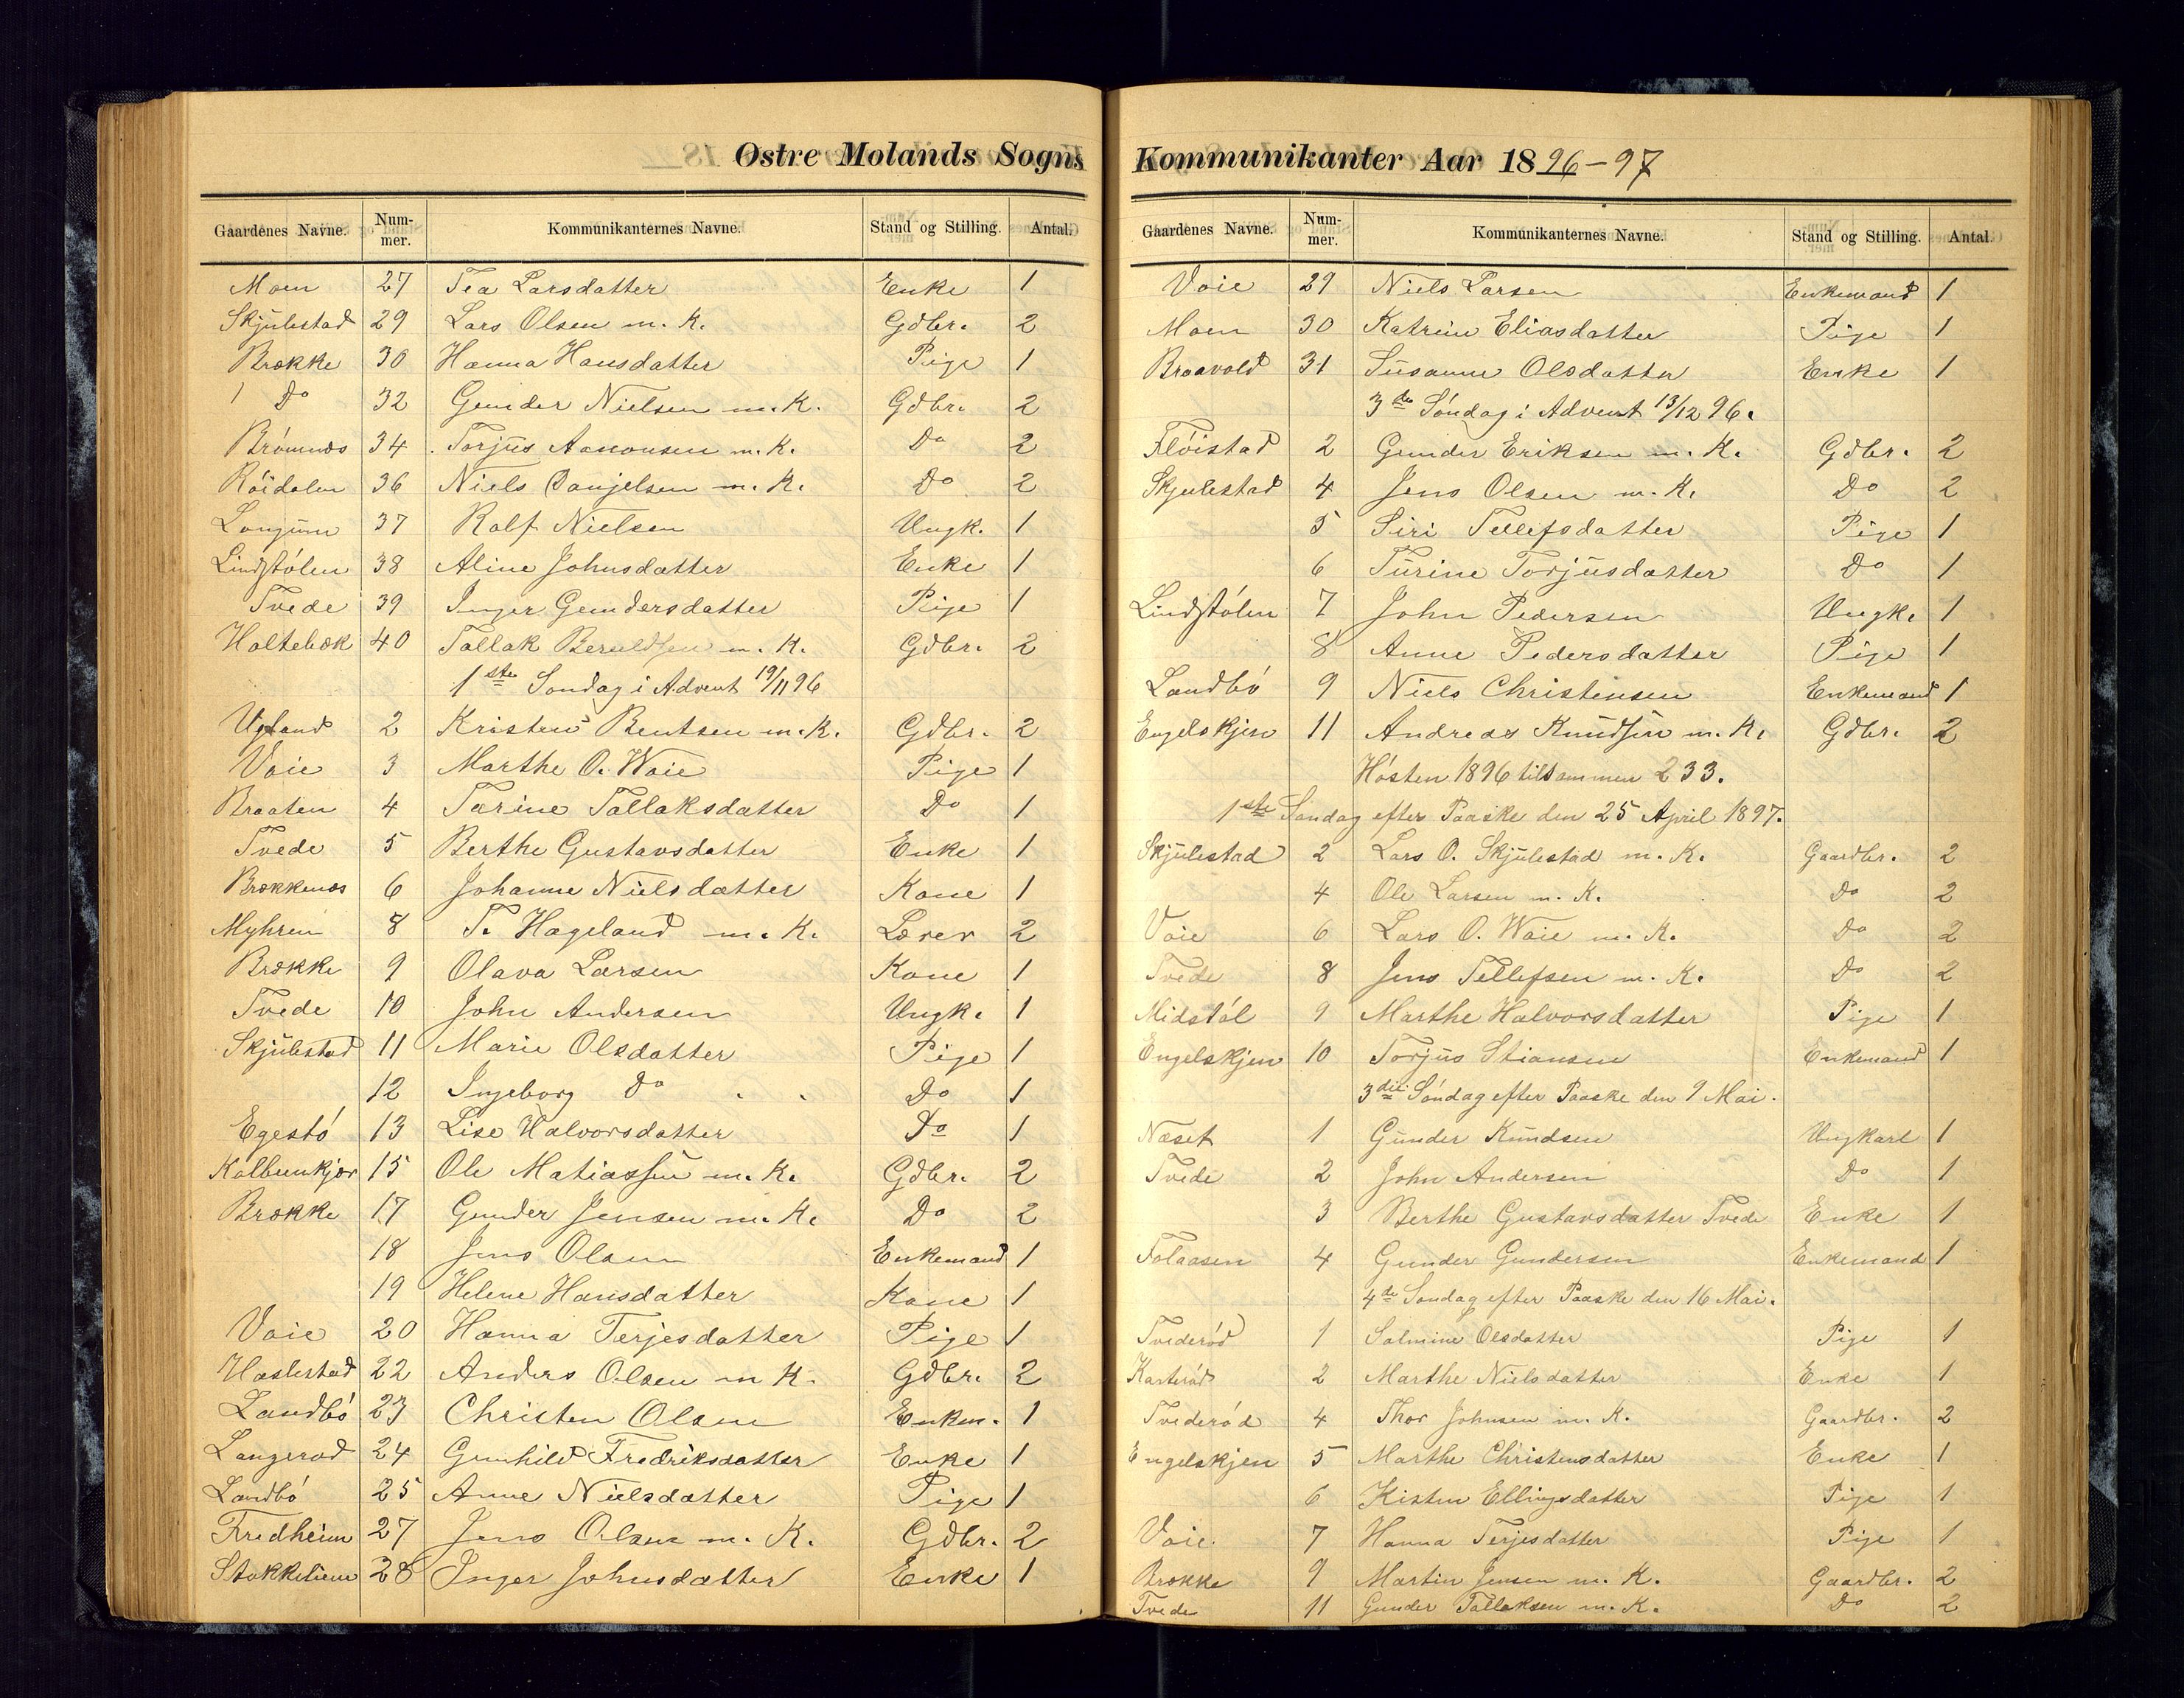 Østre Molands Sogns
Gaardenes Navne. Num-mer. Kommunikanternes Navne. Stand og Stilling. Antal.
Moen 27 Tea Larsdatter Enke 1
Skjulestad 29 Lars Olsen m. K. Gdbr. 2
Brække 30 Hanna Hansdatter Pige 1
Do 32 Gunder Nielsen m. K. Gdbr. 2
34 Torjus Aanonsen m. K. Do 2
Røidalen 36 Niels Danjelsen m. K. Do 2
Longum 37 Rolf Nielsen Ungk. 1
Lindstølen 38 Aline Johnsdatter Enke 1
Tvede 39 Inger Gundersdatter Pige 1
Holtebæk 40 Tallak Beruldsen m. K. Gdbr. 2
1ste Søndag i Advent 19/11 96
Ugland 2 Kristen Bentsen m. K. Gdbr. 2
Voie 3 Marthe O. Woie Pige 1
Braaten 4 Tarine Tallaksdatter Do 1
Tvede 5 Berthe Gustavsdatter Enke 1
Brækkenæs 6 Johanne Nielsdatter Kone 1
Myhren 8 T. Hageland m. K. Lærer 2
Brække 9 Olava Larsen Kone 1
Tvede 10 John Andersen Ungk. 1
Skjulestad 11 Marie Olsdatter Pige 1
12 Ingeborg Do Do 1
Egestø 13 Lise Halvorsdatter Do 1
Kalbeinkjær 15 Ole Matiassen m. K. Gdbr. 2
Brække 17 Gunder Jensen m. K. Do 2
18 Jens Olsen Enkemand 1
19 Helene Hansdatter Kone 1
Voie 20 Hanna Terjesdatter Pige 1
Haslestad 22 Anders Olsen m K. Gdbr. 2
Landbø 23 Christen Olsen Enkem. 1
Langerød 24 Gunhild Fredriksdatter Enke 1
Landbø 25 Anne Nielsdatter Pige 1
Fredheim 27 Jens Olsen m. K. Gdbr. 2
Stokkeliene 28 Inger Johnsdatter Enke 1
Kommunikanter Aar 1896-97
Gaardenes Navne. Num-mer. Kommunikanternes Navne. Stand og Stilling. Antal.
Voie 29 Niels Larsen Enkemand 1
Moen 30 Katrine Eliasdatter Pige 1
Braavold 31 Susanne Olsdatter Enke 1
3de Søndag i Advent 13/12 96.
Fløistad 2 Gunder Eriksen m. K. Gdbr. 2
Skjulestad 4 Jens Olsen m. K. Do 2
5 Siri Tellefsdatter Pige 1
6 Turine Torjusdatter Do 1
Lindstølen 7 John Pedersen Ungk. 1
8 Anne Pedersdatter Pige 1
Landbø 9 Niels Christensen Enkemand 1
Engelskjen 11 Andreas Knudsen m. K. Gdbr. 2
Høsten 1896 tilsammen 233.
1ste Søndag efter Paaske den 25 April 1897.
Skjulestad 2 Lars O. Skjulestad m. K. Gaardbr. 2
4 Ole Larsen m. K. Do 2
Voie 6 Lars O. Woie m. K. Do 2
Tvede 8 Jens Tellefsen m. K. Do 2
Midstøl 9 Marthe Halvorsdatter Pige 1
Engelskjen 10 Torjus Stiansen Enkemand 1
3die Søndag efter Paaske den 9 Mai.
Næset 1 Gunder Knudsen Ungkarl 1
Tvede 2 John Andersen Do 1
3 Berthe Gustavsdatter Tvede Enke 1
Folaasen 4 Gunder Gundersen Enkemand 1
4de Søndag efter Paaske den 16 Mai.
Tvederød 1 Salmine Olsdatter Pige 1
Karterød 2 Marthe Nielsdatter Enke 1
Tvederød 4 Thor Johnsen m. K. Gaardbr. 2
Engelskjen 5 Marthe Christensdatter Enke 1
6 Kisten Ellingsdatter Pige 1
Voie 7 Hanna Terjesdatter Pige 1
Brække 9 Martin Jensen m. K. Gaardbr. 2
Tvede 11 Gunder Tallaksen m. K. Do 2